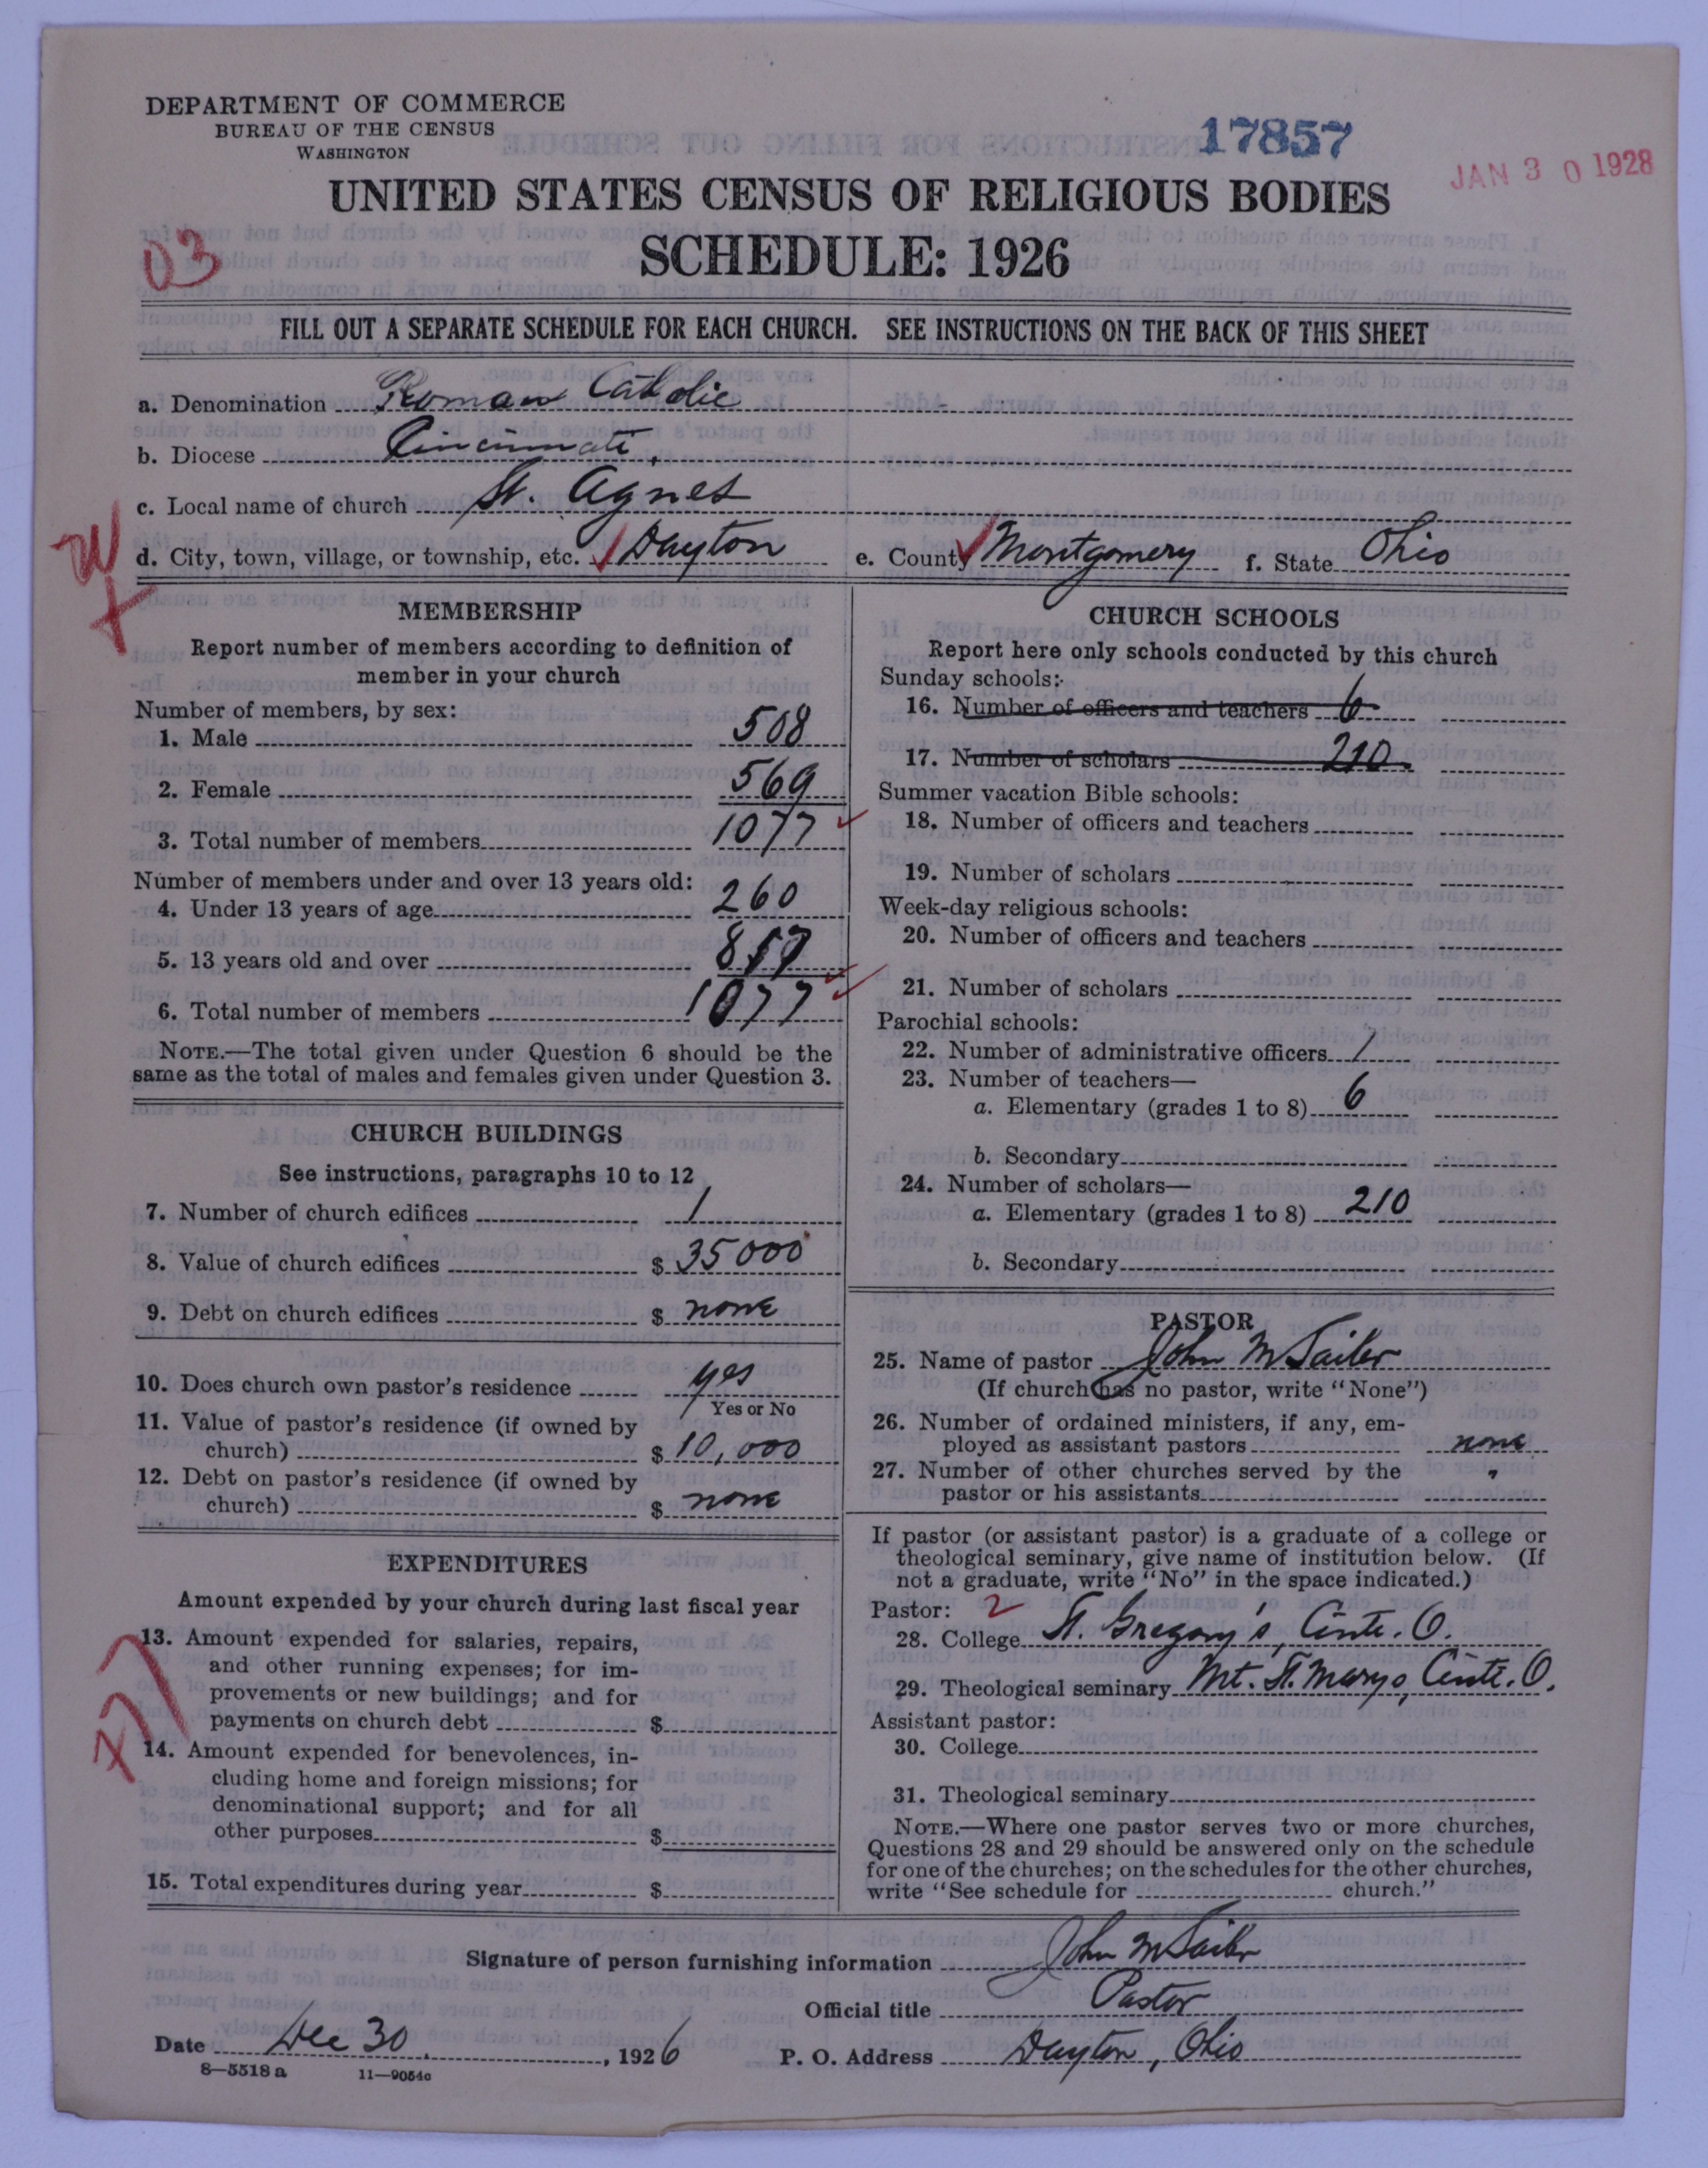 DEPARTMENT OF COMMERCE
BUREAU OF THE CENSUS
WASHINGTON
17857
JAN 30 1928
UNITED STATES CENSUS OF RELIGIOUS BODIES
SCHEDULE: 1926
03
FILL OUT A SEPARATE SCHEDULE FOR EACH CHURCH. SEE INSTRUCTIONS ON THE BACK OF THIS SHEET
a. Denomination Roman Catholic
b. Diocese Cincinnati,
c. Local name of church St. Agnes
d. City, town, village, or township, etc. Dayton e. County Montgomery f. State Ohio
MEMBERSHIP
Report number of members according to definition of
member in your church
Number of members, by sex:
1. Male 508
2. Female 569
3. Total number of members 1077
Number of members under and over 13 years old:
4. Under 13 years of age 260
5. 13 years old and over 817
6. Total number of members 1077
NOTE.—The total given under Question 6 should be the
same as the total of males and females given under Question 3.
CHURCH BUILDINGS
See instructions, paragraphs 10 to 12
7. Number of church edifices 1
8. Value of church edifices $ 35000
9. Debt on church edifices $ none
10. Does church own pastor's residence yes
Yes or No
11. Value of pastor's residence (if owned by
church) $ 10,000
12. Debt on pastor's residence (if owned by
church) $ none
EXPENDITURES
Amount expended by your church during last fiscal year
13. Amount expended for salaries, repairs,
and other running expenses; for im-
provements or new buildings; and for
payments on church debt $
14. Amount expended for benevolences, in-
cluding home and foreign missions; for
denominational support; and for all
other purposes $
15. Total expenditures during year $
CHURCH SCHOOLS
Report here only schools conducted by this church
Sunday schools:
16. Number of officers and teachers 6
17. Number of scholars 210
Summer vacation Bible schools:
18. Number of officers and teachers
19. Number of scholars
Week-day religious schools:
20. Number of officers and teachers
21. Number of scholars
Parochial schools:
22. Number of administrative officers 1
23. Number of teachers—
a. Elementary (grades 1 to 8) 6
b. Secondary
24. Number of scholars—
a. Elementary (grades 1 to 8) 210
b. Secondary
PASTOR
25. Name of pastor John M Sailer
(If church has no pastor, write "None")
26. Number of ordained ministers, if any, em-
ployed as assistant pastors none
27. Number of other churches served by the "
pastor or his assistants
If pastor (or assistant pastor) is a graduate of a college or
theological seminary, give name of institution below. (If
not a graduate, write "No" in the space indicated.)
Pastor: 2
28. College St. Gregory's, Cinti. O.
29. Theological seminary Mt. St. Marys, Cinti. O.
Assistant pastor:
30. College
31. Theological seminary
NOTE.—Where one pastor serves two or more churches,
Questions 28 and 29 should be answered only on the schedule
for one of the churches; on the schedules for the other churches,
write "See schedule for church."
Signature of person furnishing information John M Sailer
Official title Pastor
Date Dec 30, 1926 P. O. Address Dayton, Ohio
8—5518a 11—9054c